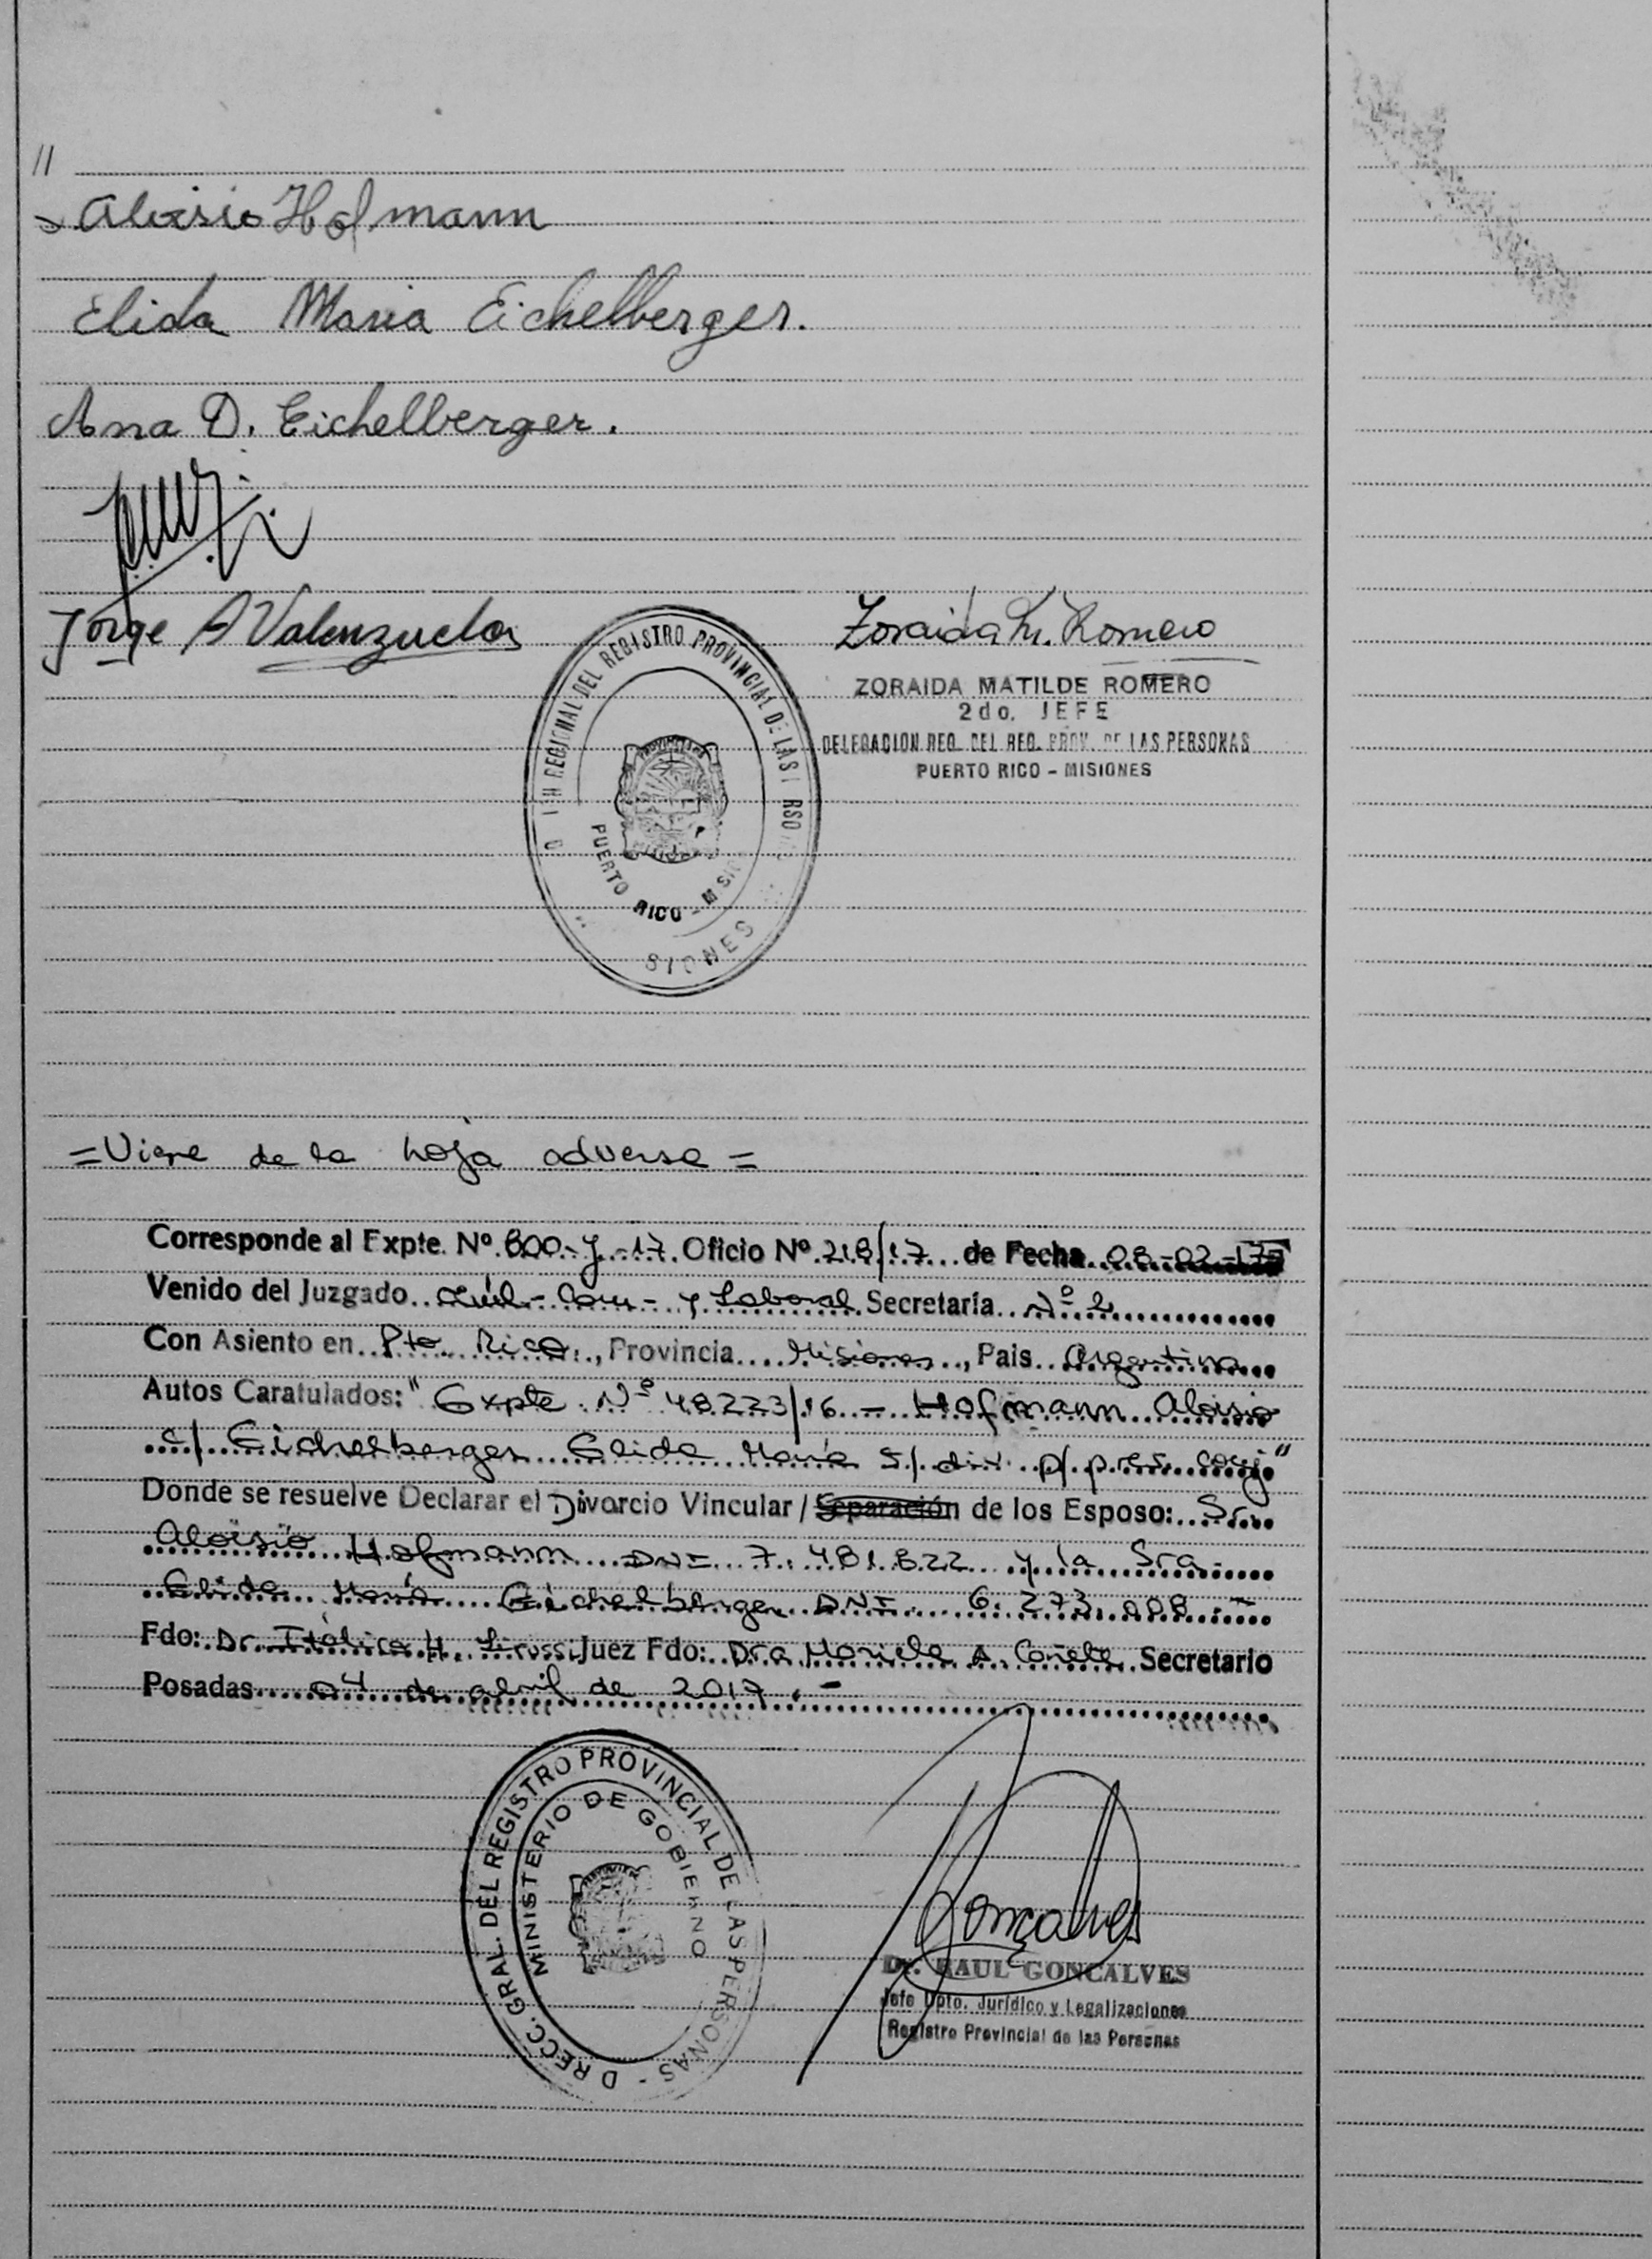 //
Aloisio Hofmann
Elida Maria Eichelberger.
Ana D. Eichelberger.
Jorge A Valenzuela
Zoraida M. Romero
ZORAIDA MATILDE ROMERO
2do. JEFE
DELEGACION REG. DEL REG. PROV. DE LAS PERSONAS
PUERTO RICO - MISIONES
REGIONAL DEL REGISTRO PROVINCIAL DE LAS
PUERTO RICO - MISI
SIONES
=Viene de la hoja adversa=
Corresponde al Expte. Nº 800-y-17 Oficio Nº 218/17 de Fecha 08-02-17
Venido del Juzgado Civil-Com- y Laboral Secretaría Nº 2
Con Asiento en Pto. Rico, Provincia Misiones, Pais Argentina
Autos Caratulados: "Expte Nº 48223/16 - Hofmann Aloisio
c/ Eichelberger Elida María s/ div. p/ pres. conj"
Donde se resuelve Declarar el Divorcio Vincular / Separación de los Esposo: Sr.
Aloisio Hofmann DNI 7.481.822 y la Sra.
Elida María Eichelberger DNI 6.273.008.-
Fdo: Dr. H. Juez Fdo: Dra Mariela A. Cañete Secretario
Posadas 04 de abril de 2017.-
D RECC. GRAL. DEL REGISTRO PROVINCIAL DE LAS PERSONAS -
MINISTERIO DE GOBIERNO
Goncalves
Dr. RAUL GONCALVES
Jefe Dpto. Jurídico y Legalizaciones
Registro Provincial de las Personas